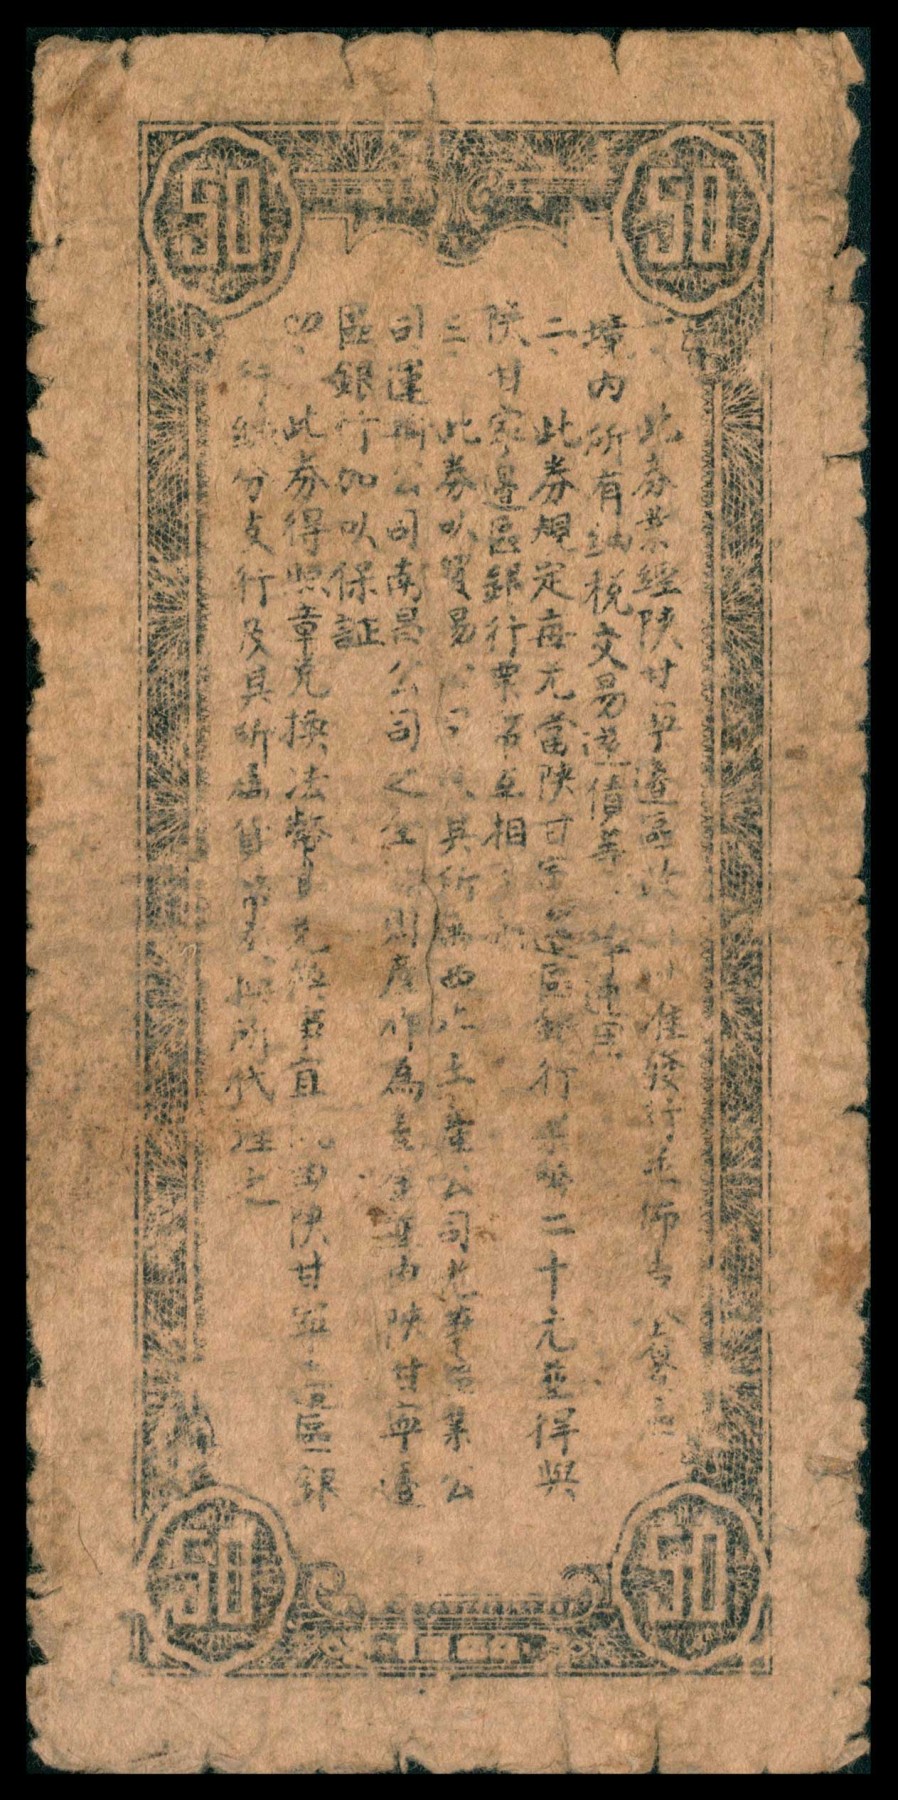 50
50
一、此券業經陝甘寧邊區政 准發行並佈告
境內所有納稅交易還債等 通用
二、此券規定每元當陝甘寧邊區銀行 幣二十元並得與
陝甘寧邊區銀行票幣互相
三、此券以貿易公司及其所屬西北土產公司光華 業公
司運輸公司南昌公司之全 財產作為基金並由陝甘寧邊
區銀行加以保証
四、此券得照章兌換法幣其兌換事宜 由陝甘寧邊區銀
行總分支行及其所屬貨幣交換所代理之
50
50